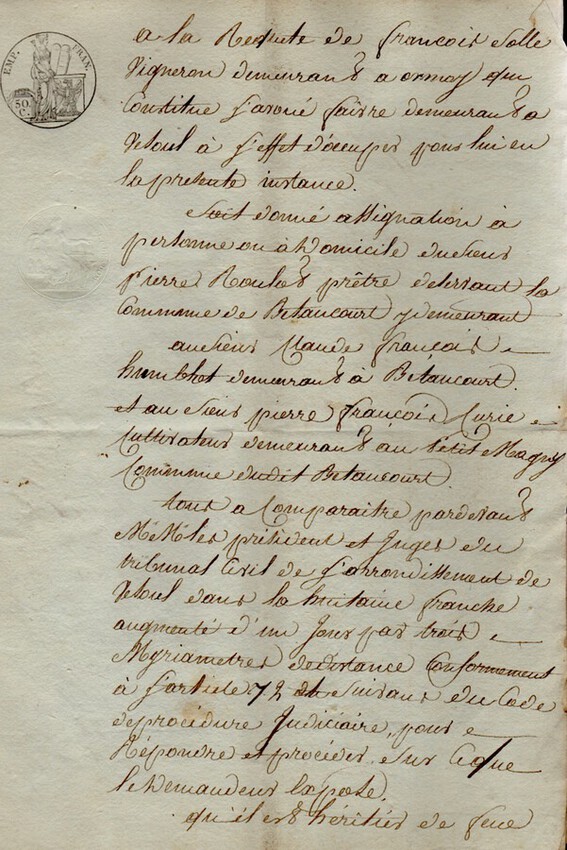 EMP. FRAN.
50 C.
a la Requete de françois Solle
Vigneron demeurant a ormoy qui
Constitue l'avoué faivre demeurant a
Vesoul à l'effet d'occuper pour lui en
la presente instance.
Soit donné assignation à
personne ou à domicile du sieur
pierre prêtre desservant la
Commune de Betaucourt y demeurant
au sieur Claude françois
humblot demeurant à Betaucourt.
et au sieur pierre françois Curie
Cultivateur demeurant au petit Magny
Commune dudit Betaucourt.
tous a Comparaitre pardevant
M.M. les président et Juges du
tribunal Civil de l'arrondissement de
Vesoul dans la huitaine franche
augmenté d'un Jour par trois
Myriametres de distance Conformement
à l'article 72 et suivant du Code
de procédure Judiciaire, pour
Répondre et procéder sur ce que
le Demandeur Expose.
qu'il est héritier de feue